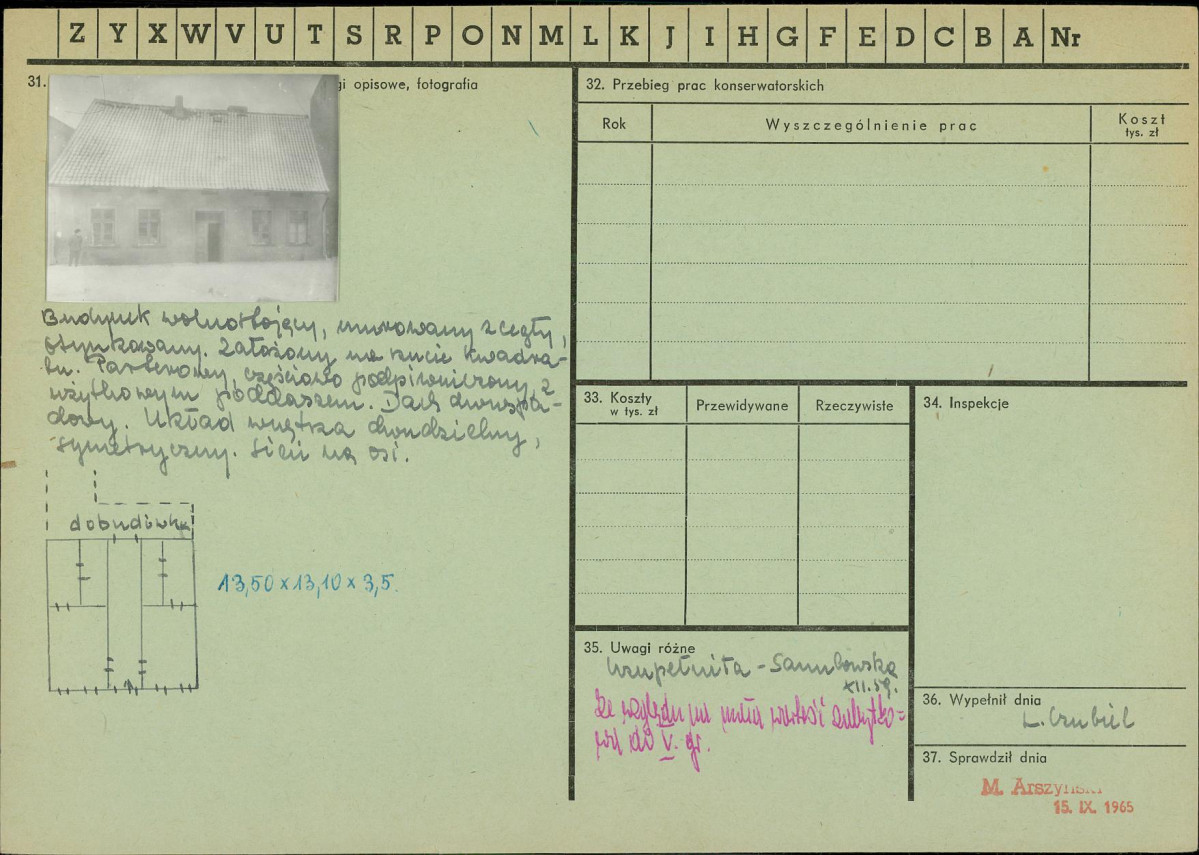 Z Y X W V U T S R P O N M L K J I H G F E D C B A Nr
31. gi opisowe, fotografia
Budynek wolnostojący, murowany z cegły,
otynkowany. Założony na rzucie kwadra-
tu. Parterowy, częściowo podpiwniczony, z
użytkowym poddaszem. Dach dwuspa-
dowy. Układ wnętrza dwudzielny,
symetryczny. Sień na osi.
dobudówka
13,50 x 13,10 x 3,5.
32. Przebieg prac konserwatorskich
Rok Wyszczególnienie prac Koszt
tys. zł
33. Koszty
w tys. zł
Przewidywane Rzeczywiste
34. Inspekcje
35. Uwagi różne
Uzupełniła -
XII.59.
Ze względu na małą wartość zabytko=
wą do V. gr.
36. Wypełnił dnia
L. Czubiel
37. Sprawdził dnia
M. Arszyński
15. IX. 1965